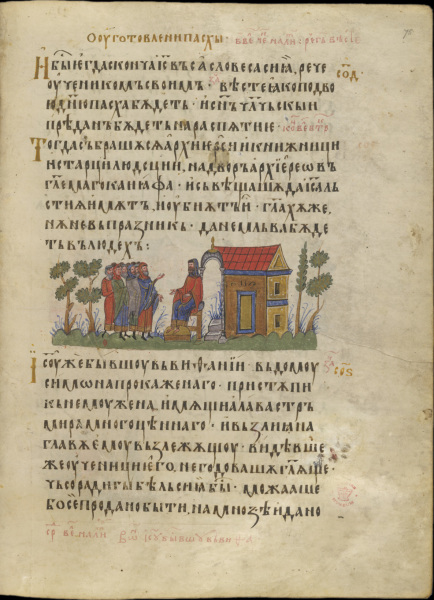 О оуготовлени пасхы
И бꙑⷭ҇ егда сконча ІС̅ въса словеса си ꙗ, рече
оученикомъ своимъ · вѣсте ꙗко по двою
д̅нїю пасха бѫдетъ · и с̅нъ чл҃чьскыи
прѣданъ бѫдетъ на распѧтие ·
Тогда събрашѧсѧ архиерее и книжници
и старци людсции, на дворъ архїереѡвъ
гл҃емаго каиафа · и съвѣщашѧ да і҃са лъ
стиѫ имѫтъ, и оубиѫтъ и · гл҃ахѫ же,
нѫ не въ праздникъ · да не млъва бѫде
тъ въ людехъ :
І҃соу же бывшоу въ виѳ҃анїи · въ домоу
симѡна прокаженаго · пристѫпи
къ немоу жена, имѫщи алавастръ
мира многоцѣннаго · и възлиꙗ на
главѫ емоу възлежѧщоу · видѣвше
же оученици его, негодовашѧ гл҃ѧще ·
чьсо ради гыбѣль си бꙑⷭ҇ · можаше
бо се продано быти, на мнозѣ и дано